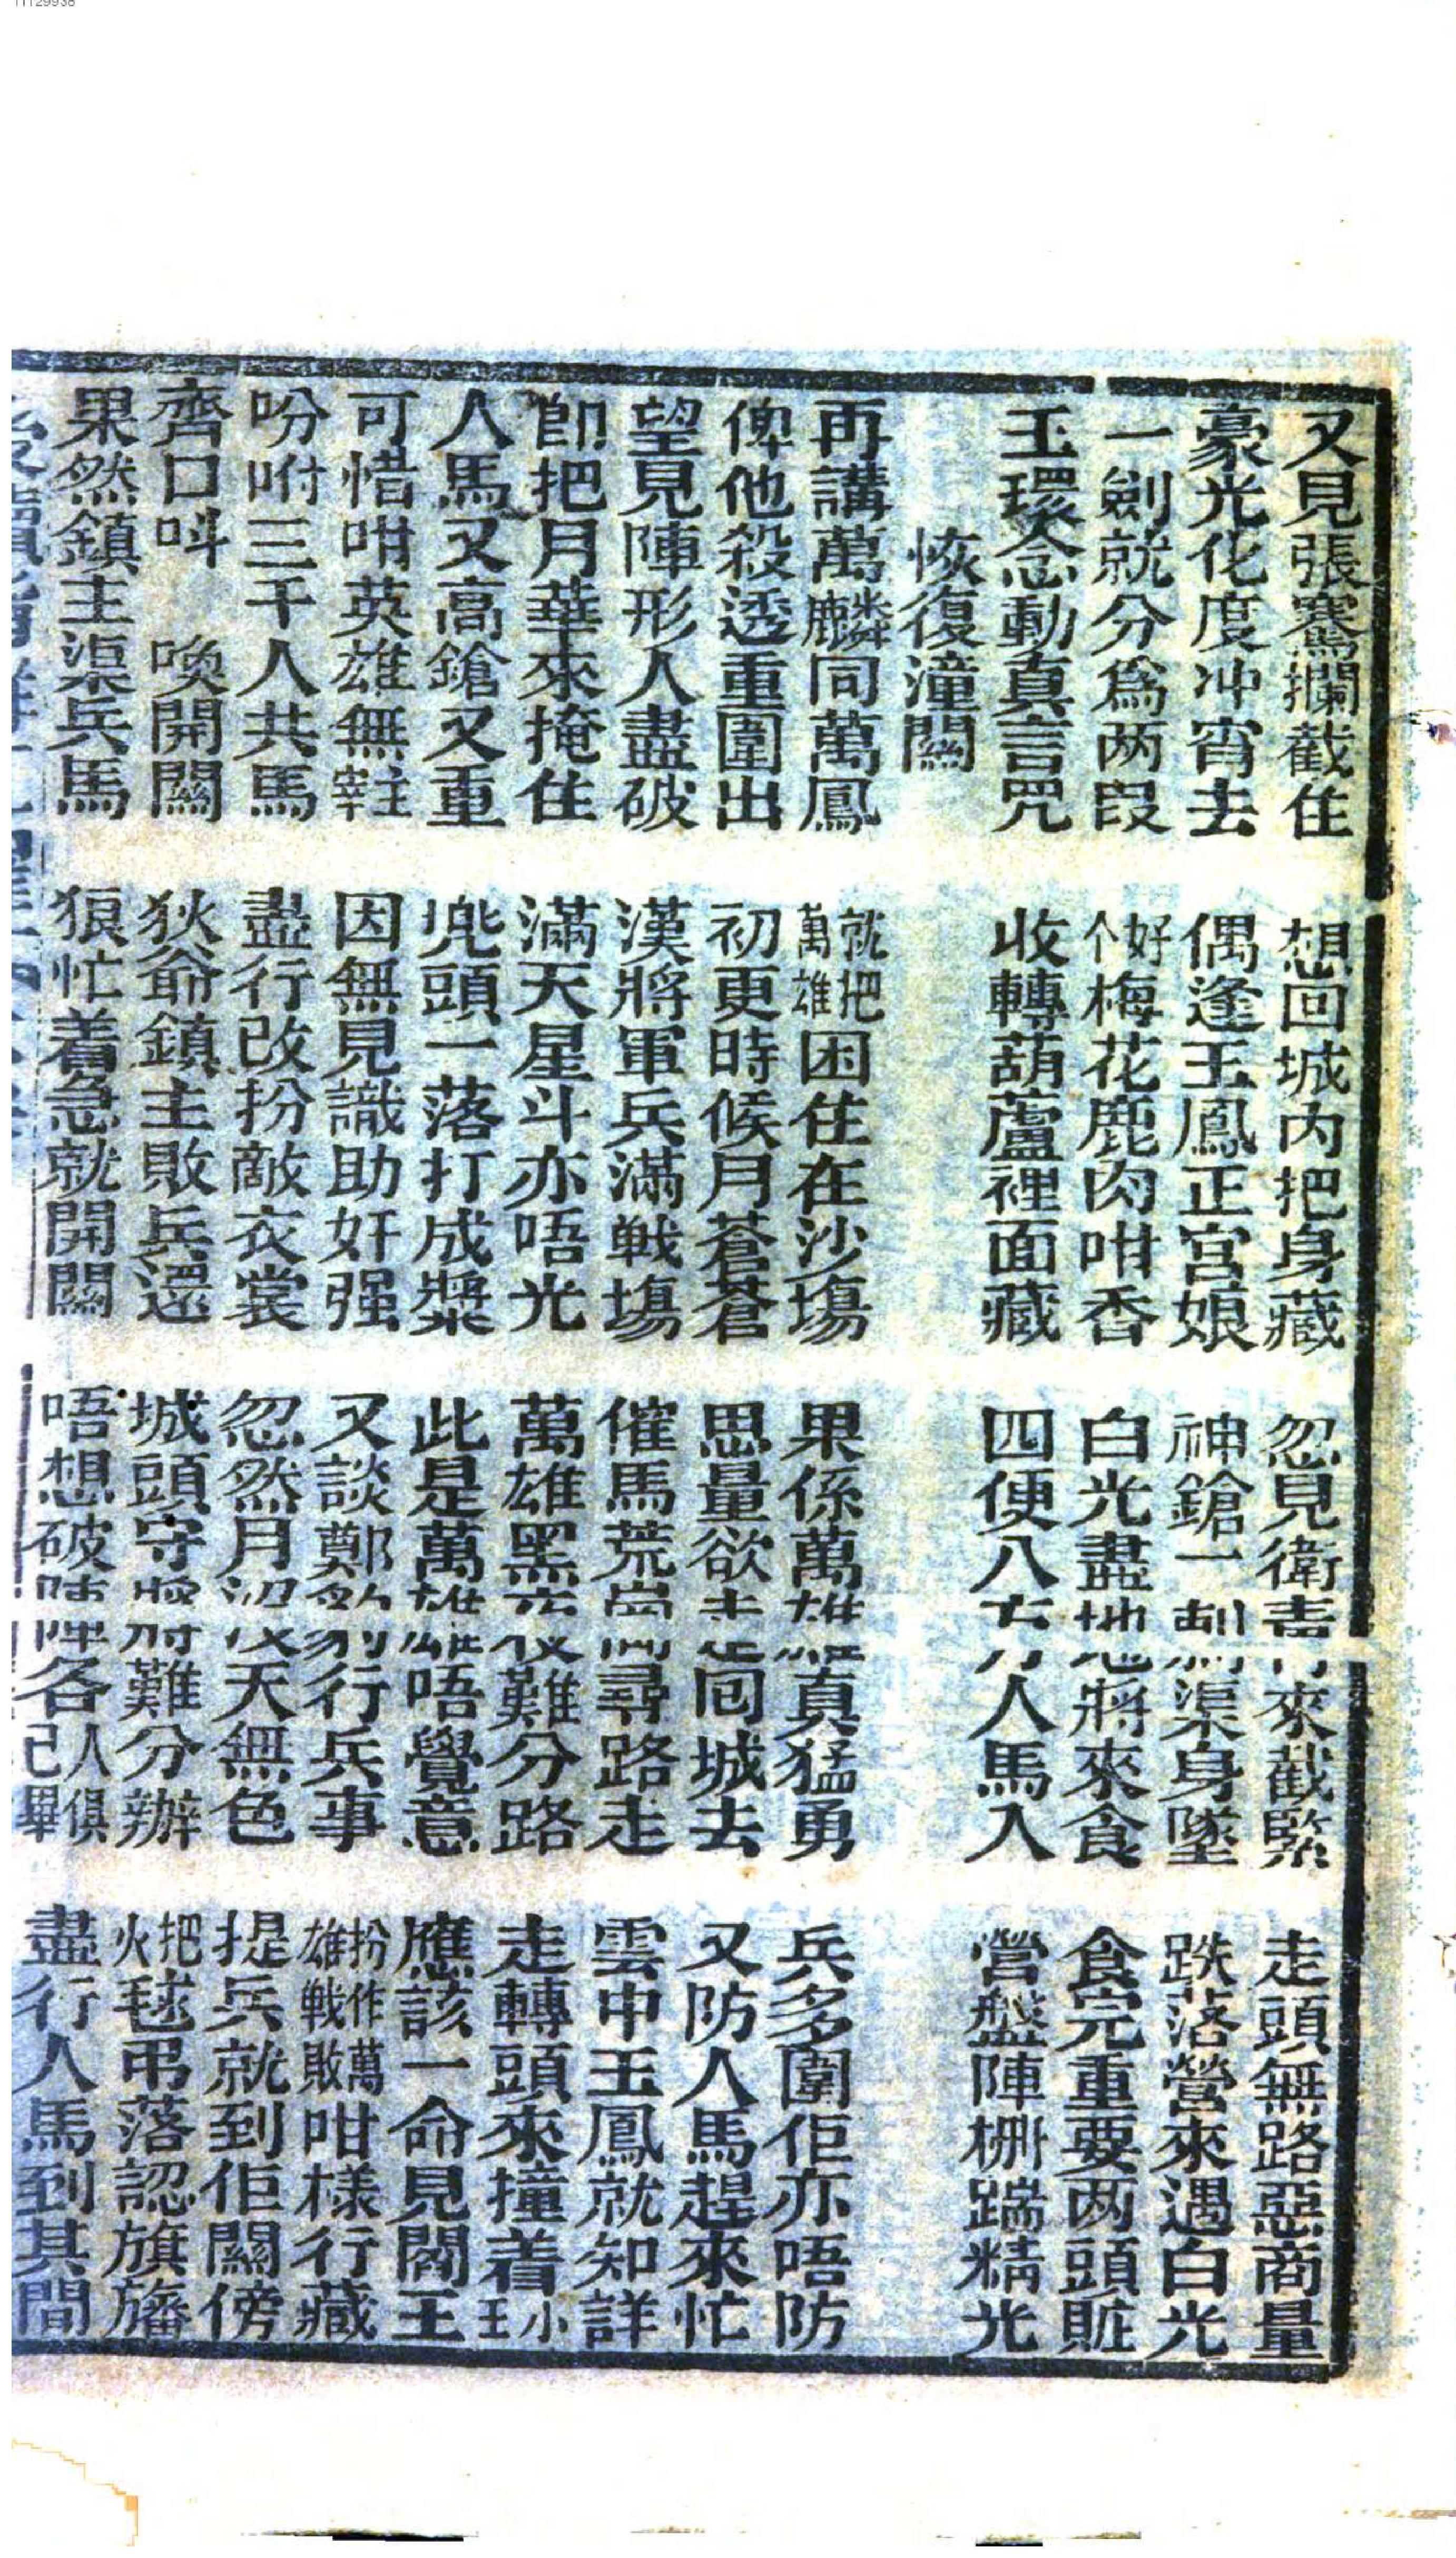 又見張騫攔截住 想回城内把身藏 忽見衛青來截緊 走頭無路惡商量
豪光化度冲宵去 偶逢玉鳳正宫娘 神鎗一刺渠身墜 跌落營來遇白光
一劍就分爲两段 好个梅花鹿肉咁香 白光盡地將來食 食完重要两頭賍
玉環念動真言咒 收轉葫蘆裡面藏 四便八方人馬入 營盤陣柵踹精光
恢復潼關
再講萬麟同萬鳳 就把萬雄困住在沙塲 果係萬雄真猛勇 兵多圍佢亦唔防
俾他殺透重圍出 初更時候月蒼蒼 思量欲走囘城去 又防人馬趕來忙
望見陣形人盡破 漢將軍兵滿戦塲 催馬荒崗尋路走 雲中玉鳳就知詳
卽把月華來掩住 滿天星斗亦唔光 萬雄黑夜難分路 走轉頭來撞着小王
人馬又高鎗又重 兜頭一落打成漿 此是萬雄唔覺意 應該一命見閻王
可惜咁英雄無主宰 因無見識助奸强 又談鄭豹行兵事 扮作萬雄戦敗咁様行藏
吩咐三千人共馬 盡行改扮敵衣裳 忽然月沒天無色 提兵就到佢關傍
齊口呌 喚開關 狄爺鎮主敗兵還 城頭守將難分辦 把火毬吊落認旗旛
果然鎮主渠兵馬 狠忙着急就開關 唔想破陣各人俱已畢 盡行人馬到其間